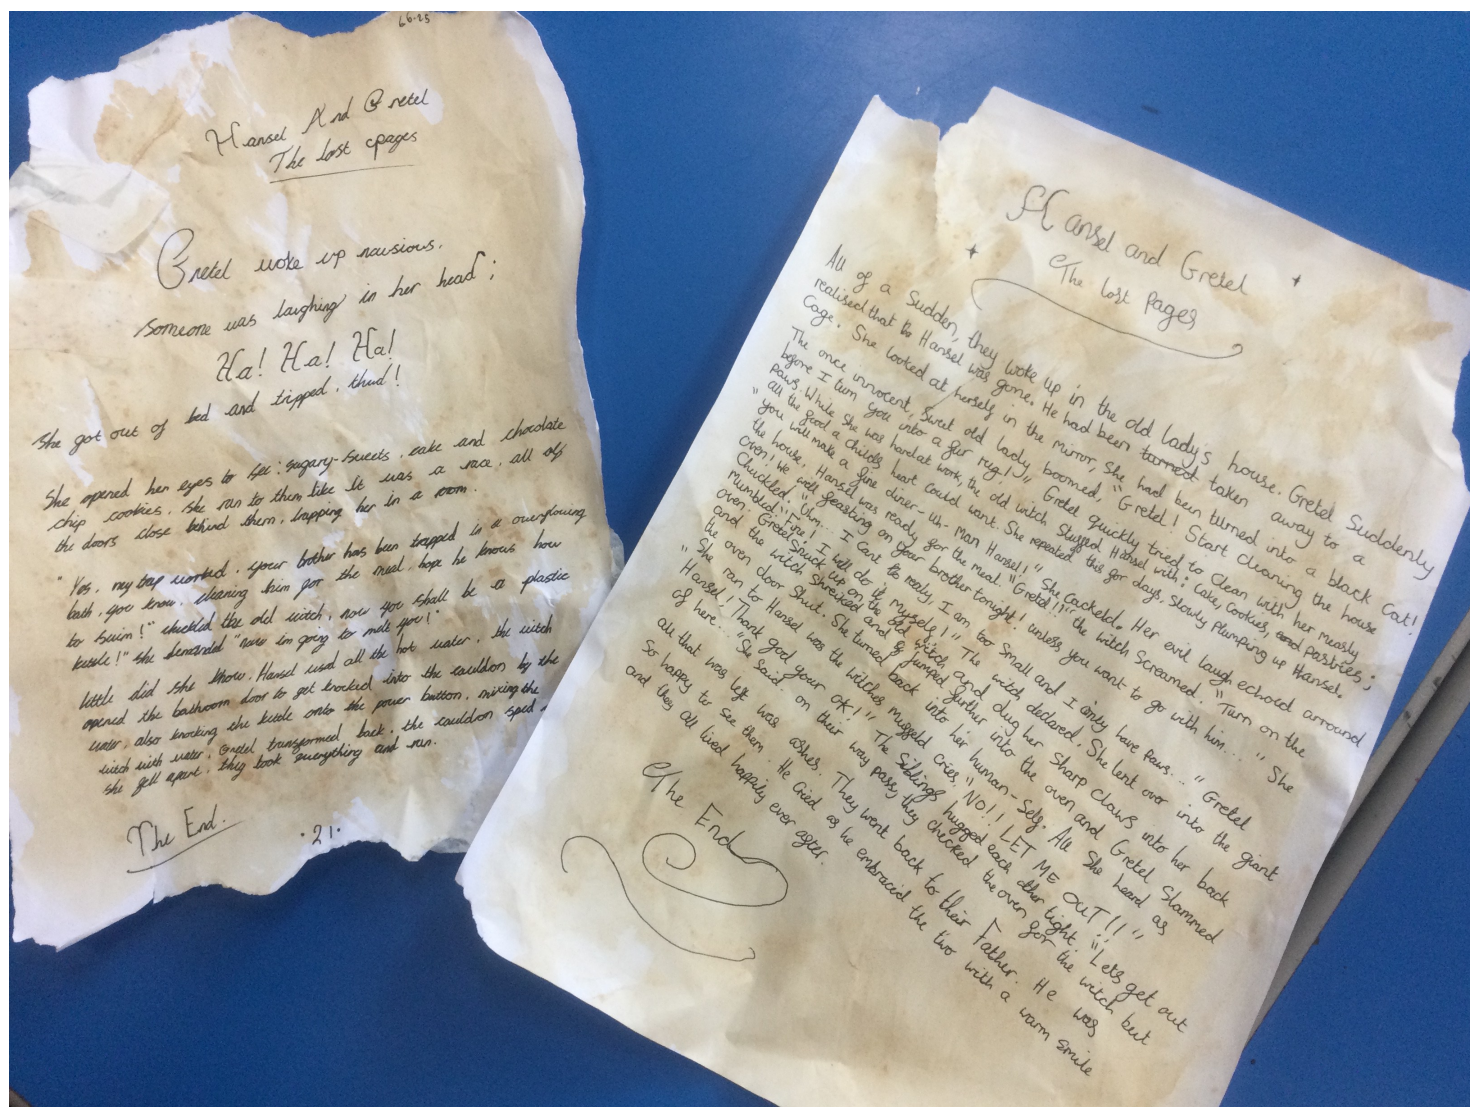 66-25
Hansel And Gretel
The lost pages
Gretel woke up nausious,
someone was laughing in her head;
Ha! Ha! Ha!
She got out of bed and tripped, thud!
She opened her eyes to see: sugary-sweets, cake and chocolate
chip cookies. She ran to them like it was a race, all of
the doors close behind them, trapping her in a room.
"Yes, my trap worked, your brother has been trapped in a overflowing
bath, you know, cleaning him for the meal, hope he knows how
to swim!" chuckled the old witch, now you shall be a plastic
kettle!" she demanded "now im going to melt you!"
little did she know, Hansel used all the hot water, the witch
opened the bathroom door to get knocked into the cauldron by the
water, also knocking the kettle onto the power button, mixing the
witch with water, Gretel transformed back, the cauldron sped
she fell apart, they took everything and ran.
The End.
.21.
Hansel and Gretel
The lost Pages
All of a Sudden, they woke up in the old lady's house. Gretel Suddenly
realised that Hansel was gone. He had been turned taken away to a
Cage. She looked at herself in the mirror, she had been turned into a black Cat!
The once innocent, sweet old lady, boomed, "Gretel! Start cleaning the house
before I turn you into a fur rug!" Gretel quickly tried to clean with her measly
paws. While she was hard at work, the old witch stuffed Hansel with: Cake, Cookies, and pastries;
all the food a childs heart could want. She repeated this for days, slowly plumping up Hansel.
"you will make a fine diner-uh-man Hansel!" She Cackeld. Her evil laugh echoed arround
the house. Hansel was ready for the meal. "Gretel!!" the witch screamed. "Turn on the
oven! we will feasting on your brother tonight! unless you want to go with him..." She
Chuckled. "Uhm... I Cant really, I am too small and I only have paws..." Gretel
mumbled. "Fine! I will do it myself!" The witch declared. She lent over into the giant
oven. Gretel snuck up on the old witch and dug her sharp claws into her back
and the witch shreiked and jumped further into the oven and Gretel Slammed
the oven door Shut. She turned back into her human-self. All She heard as
She ran to Hansel was the witches muffled cries. "NO!! LET ME OUT!!"
"Hansel! Thank god your OK!" The Siblings hugged each other tight. "Lets get out
of here..." She Said. on their way pass, they checked the oven for the witch but
all that was left was ashes. They went back to their Father. He was
So happy to see them. He Cried as he embraced the two with a warm smile
and they all lived happily ever after.
The End